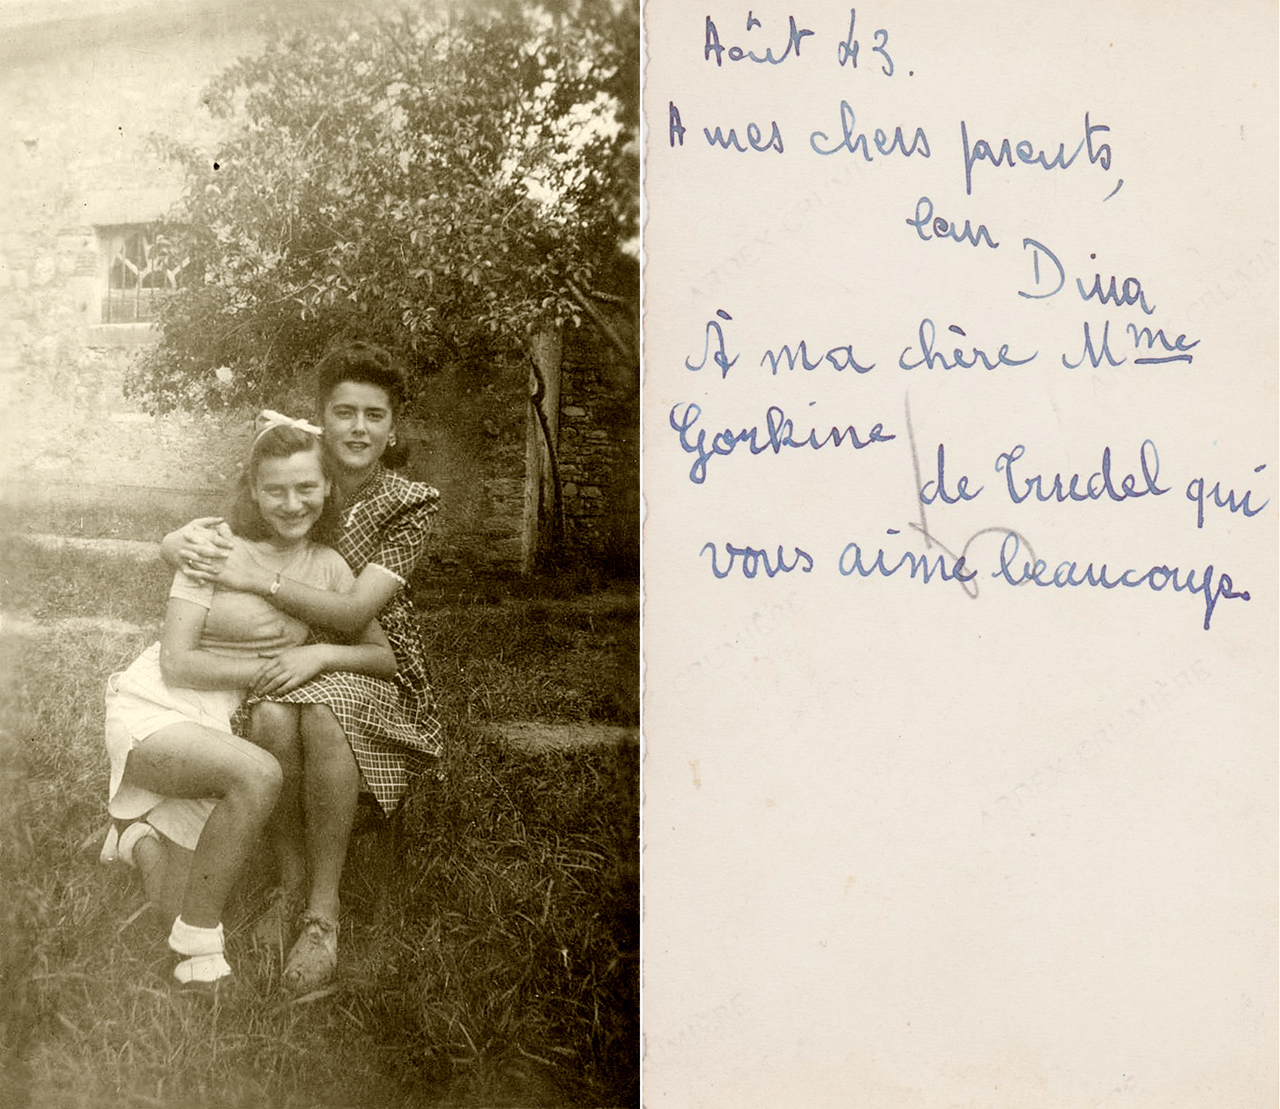 Août 43.
A mes chers parents,
leur
Dina
À ma chère Mme
Gorkine
de Trudel qui
vous aime beaucoup.
ARTEX CRUMIÈRE